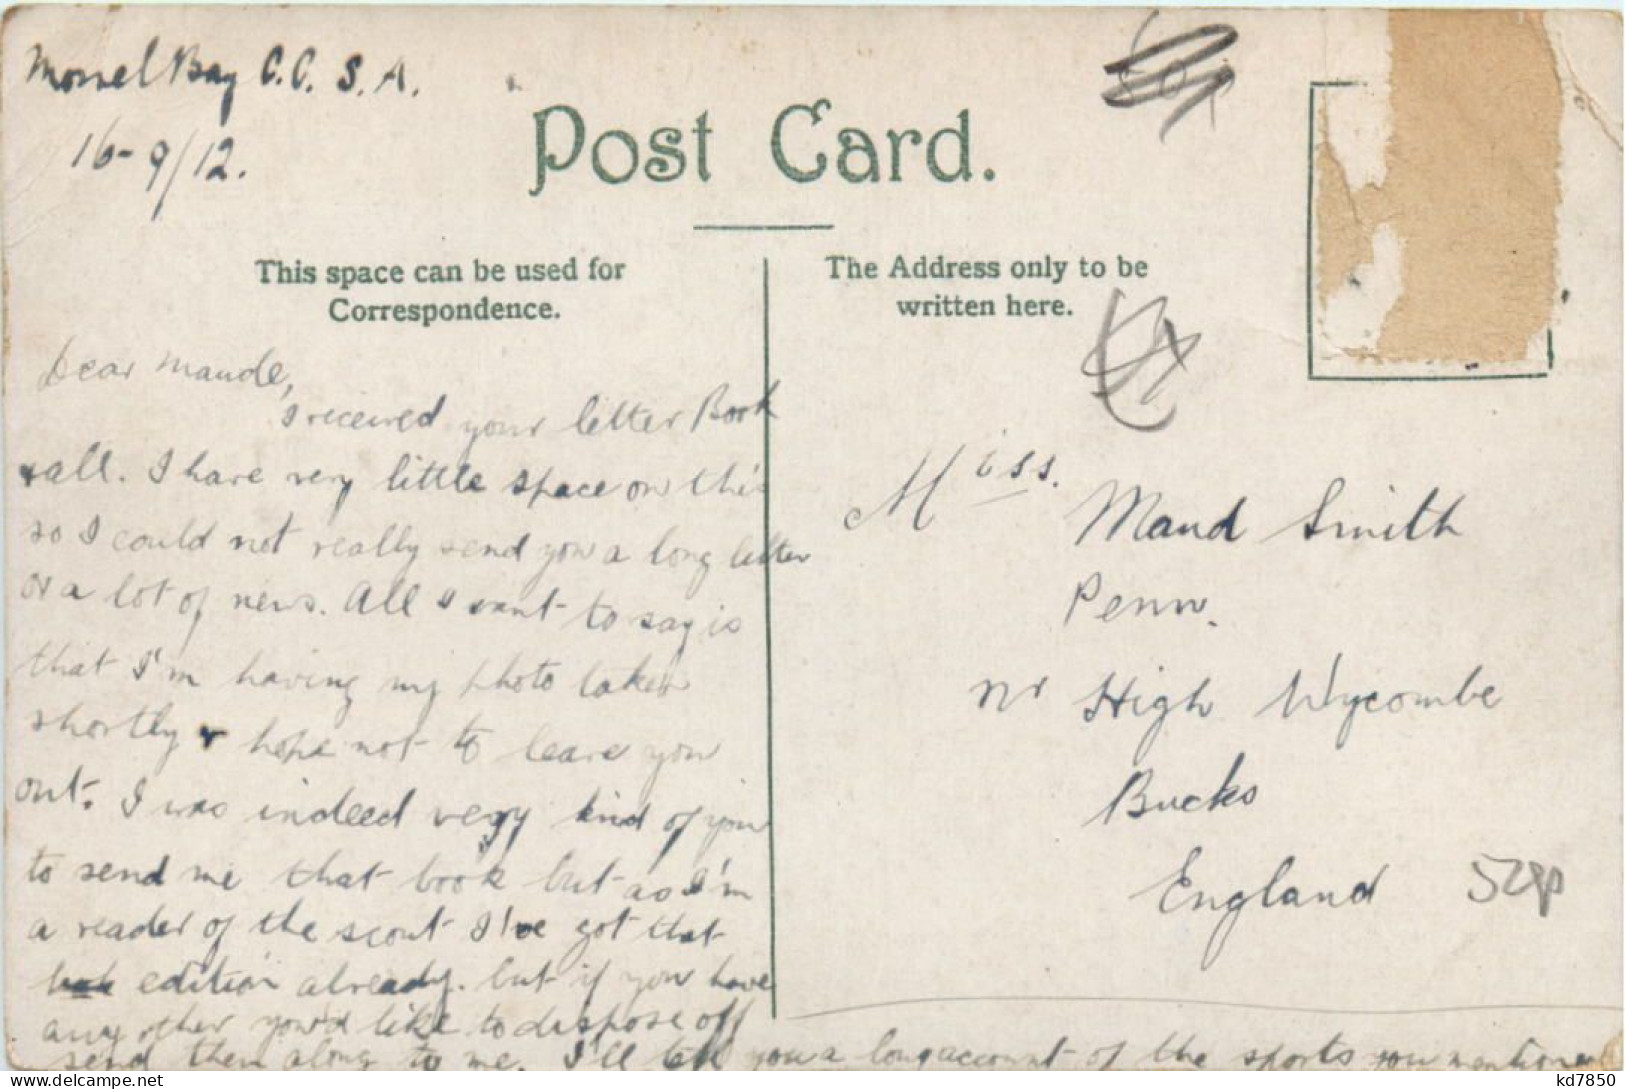 Mossel Bay C.C. S.A.
16-9/12.
Post Card.
This space can be used for
Correspondence.
The Address only to be
written here.
Dear Maude,
I received your letter Book
& all. I have very little space on this
so I could not really send you a long letter
or a lot of news. All I want to say is
that I'm having my photo taken
shortly & hope not to leave you
out. I was indeed very kind of you
to send me that book but as I'm
a reader of the scout I've got that
edition already. but if you have
any other you'd like to dispose off
send them along to me. I'll tell you a long account of the sports you mentioned
Miss.
Maud Smith
Penn.
nr High Wycombe
Bucks
England
52p
kd7850